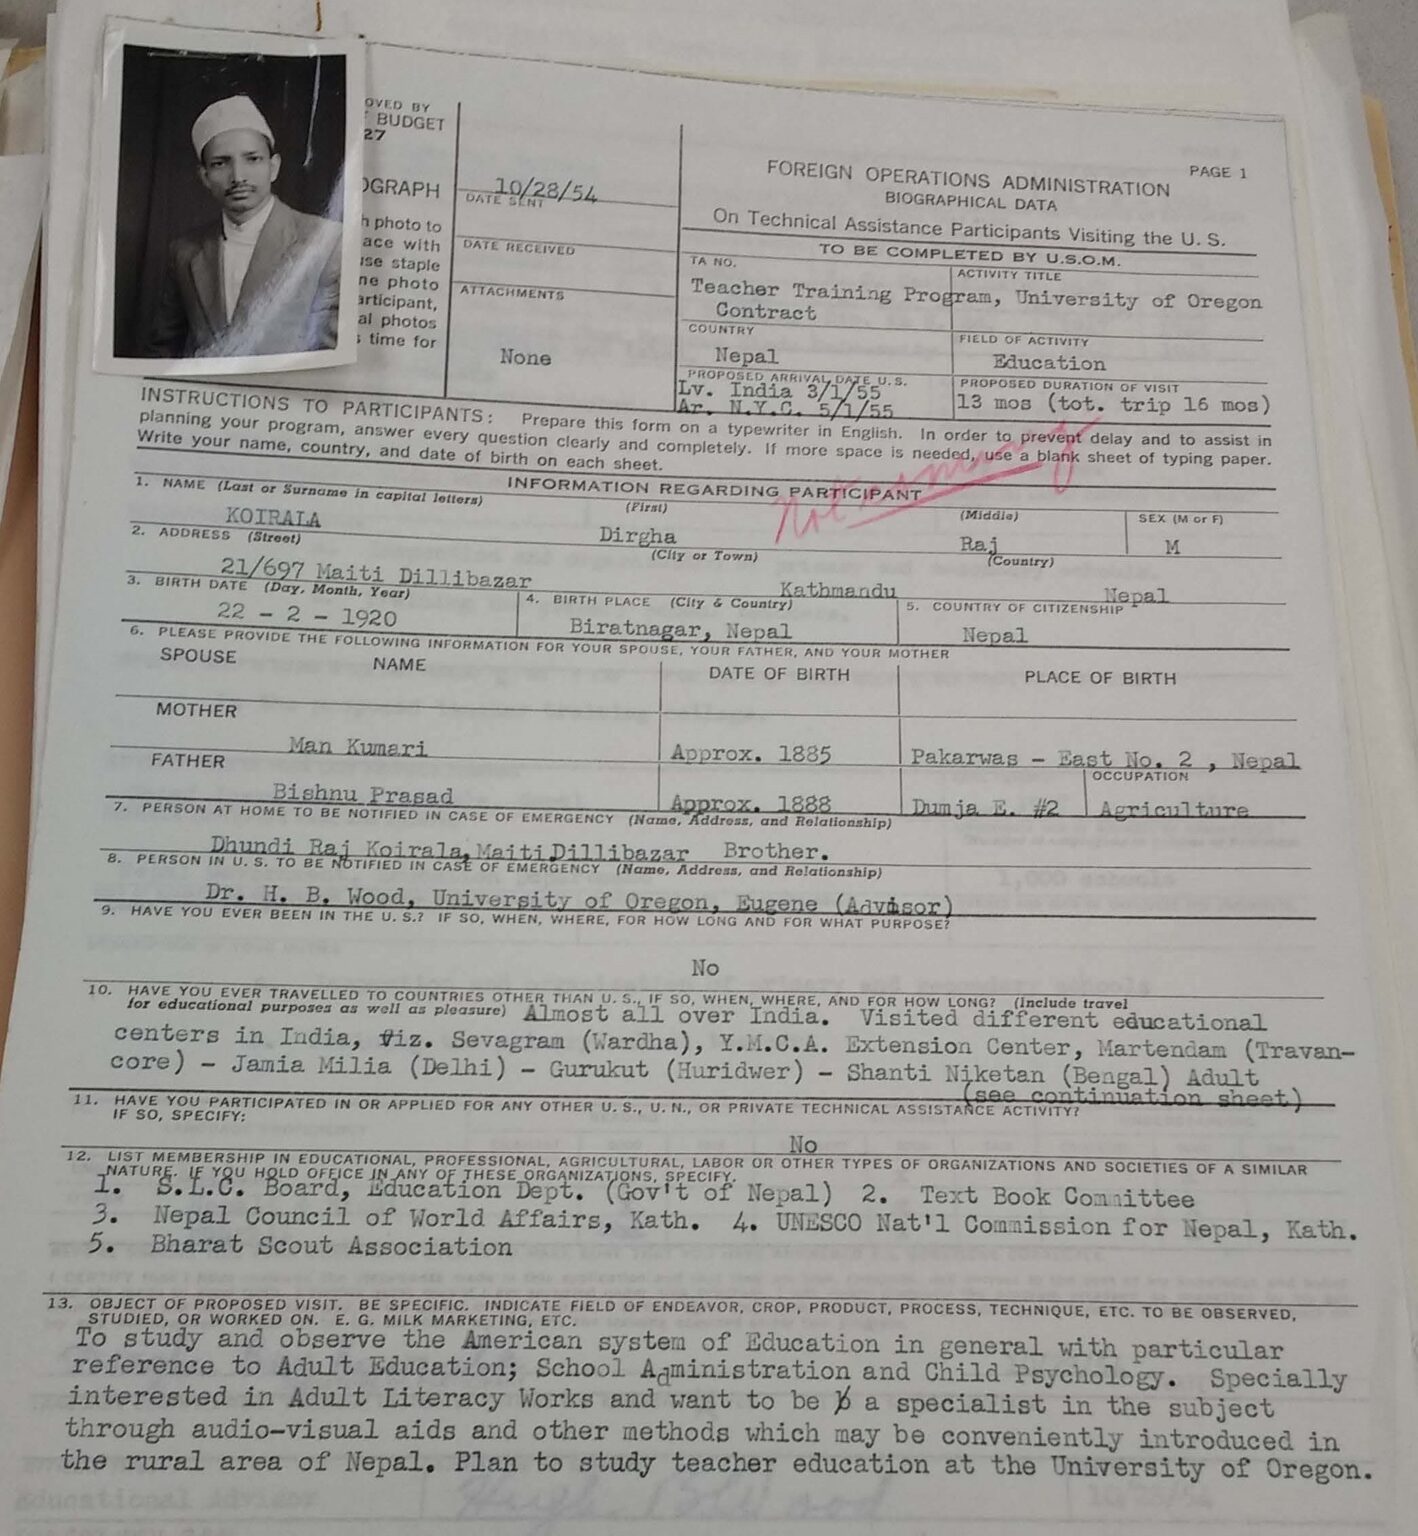 OVED BY
BUDGET
27
OGRAPH
h photo to
ace with
use staple
ne photo
articipant,
al photos
time for
10/28/54
DATE SENT
DATE RECEIVED
ATTACHMENTS
None
PAGE 1
FOREIGN OPERATIONS ADMINISTRATION
BIOGRAPHICAL DATA
On Technical Assistance Participants Visiting the U. S.
TO BE COMPLETED BY U.S.O.M.
TA NO.
ACTIVITY TITLE
Teacher Training Program, University of Oregon
Contract
COUNTRY
FIELD OF ACTIVITY
Nepal
Education
PROPOSED ARRIVAL DATE U.S.
PROPOSED DURATION OF VISIT
Lv. India 3/1/55
Ar. N.Y.C. 5/1/55
13 mos (tot. trip 16 mos)
INSTRUCTIONS TO PARTICIPANTS: Prepare this form on a typewriter in English. In order to prevent delay and to assist in
planning your program, answer every question clearly and completely. If more space is needed, use a blank sheet of typing paper.
Write your name, country, and date of birth on each sheet.
Not coming
INFORMATION REGARDING PARTICIPANT
1. NAME (Last or Surname in capital letters) (First) (Middle) SEX (M or F)
KOIRALA Dirgha Raj M
2. ADDRESS (Street) (City or Town) (Country)
21/697 Maiti Dillibazar Kathmandu Nepal
3. BIRTH DATE (Day, Month, Year) 4. BIRTH PLACE (City & Country) 5. COUNTRY OF CITIZENSHIP
22 - 2 - 1920 Biratnagar, Nepal Nepal
6. PLEASE PROVIDE THE FOLLOWING INFORMATION FOR YOUR SPOUSE, YOUR FATHER, AND YOUR MOTHER
SPOUSE NAME DATE OF BIRTH PLACE OF BIRTH
MOTHER
Man Kumari Approx. 1885 Pakarwas - East No. 2 , Nepal
FATHER OCCUPATION
Bishnu Prasad Approx. 1888 Dumja E. #2 Agriculture
7. PERSON AT HOME TO BE NOTIFIED IN CASE OF EMERGENCY (Name, Address, and Relationship)
Dhundi Raj Koirala, Maiti Dillibazar Brother.
8. PERSON IN U. S. TO BE NOTIFIED IN CASE OF EMERGENCY (Name, Address, and Relationship)
Dr. H. B. Wood, University of Oregon, Eugene (Advisor)
9. HAVE YOU EVER BEEN IN THE U. S.? IF SO, WHEN, WHERE, FOR HOW LONG AND FOR WHAT PURPOSE?
No
10. HAVE YOU EVER TRAVELLED TO COUNTRIES OTHER THAN U. S., IF SO, WHEN, WHERE, AND FOR HOW LONG? (Include travel
for educational purposes as well as pleasure) Almost all over India. Visited different educational
centers in India, viz. Sevagram (Wardha), Y.M.C.A. Extension Center, Martendam (Travan-
core) - Jamia Milia (Delhi) - Gurukut (Huridwer) - Shanti Niketan (Bengal) Adult
(see continuation sheet)
11. HAVE YOU PARTICIPATED IN OR APPLIED FOR ANY OTHER U. S., U. N., OR PRIVATE TECHNICAL ASSISTANCE ACTIVITY?
IF SO, SPECIFY:
No
12. LIST MEMBERSHIP IN EDUCATIONAL, PROFESSIONAL, AGRICULTURAL, LABOR OR OTHER TYPES OF ORGANIZATIONS AND SOCIETIES OF A SIMILAR
NATURE. IF YOU HOLD OFFICE IN ANY OF THESE ORGANIZATIONS, SPECIFY.
1. S.L.C. Board, Education Dept. (Gov't of Nepal) 2. Text Book Committee
3. Nepal Council of World Affairs, Kath. 4. UNESCO Nat'l Commission for Nepal, Kath.
5. Bharat Scout Association
13. OBJECT OF PROPOSED VISIT. BE SPECIFIC. INDICATE FIELD OF ENDEAVOR, CROP, PRODUCT, PROCESS, TECHNIQUE, ETC. TO BE OBSERVED,
STUDIED, OR WORKED ON. E. G. MILK MARKETING, ETC.
To study and observe the American system of Education in general with particular
reference to Adult Education; School Administration and Child Psychology. Specially
interested in Adult Literacy Works and want to be a specialist in the subject
through audio-visual aids and other methods which may be conveniently introduced in
the rural area of Nepal. Plan to study teacher education at the University of Oregon.
Educational Advisor